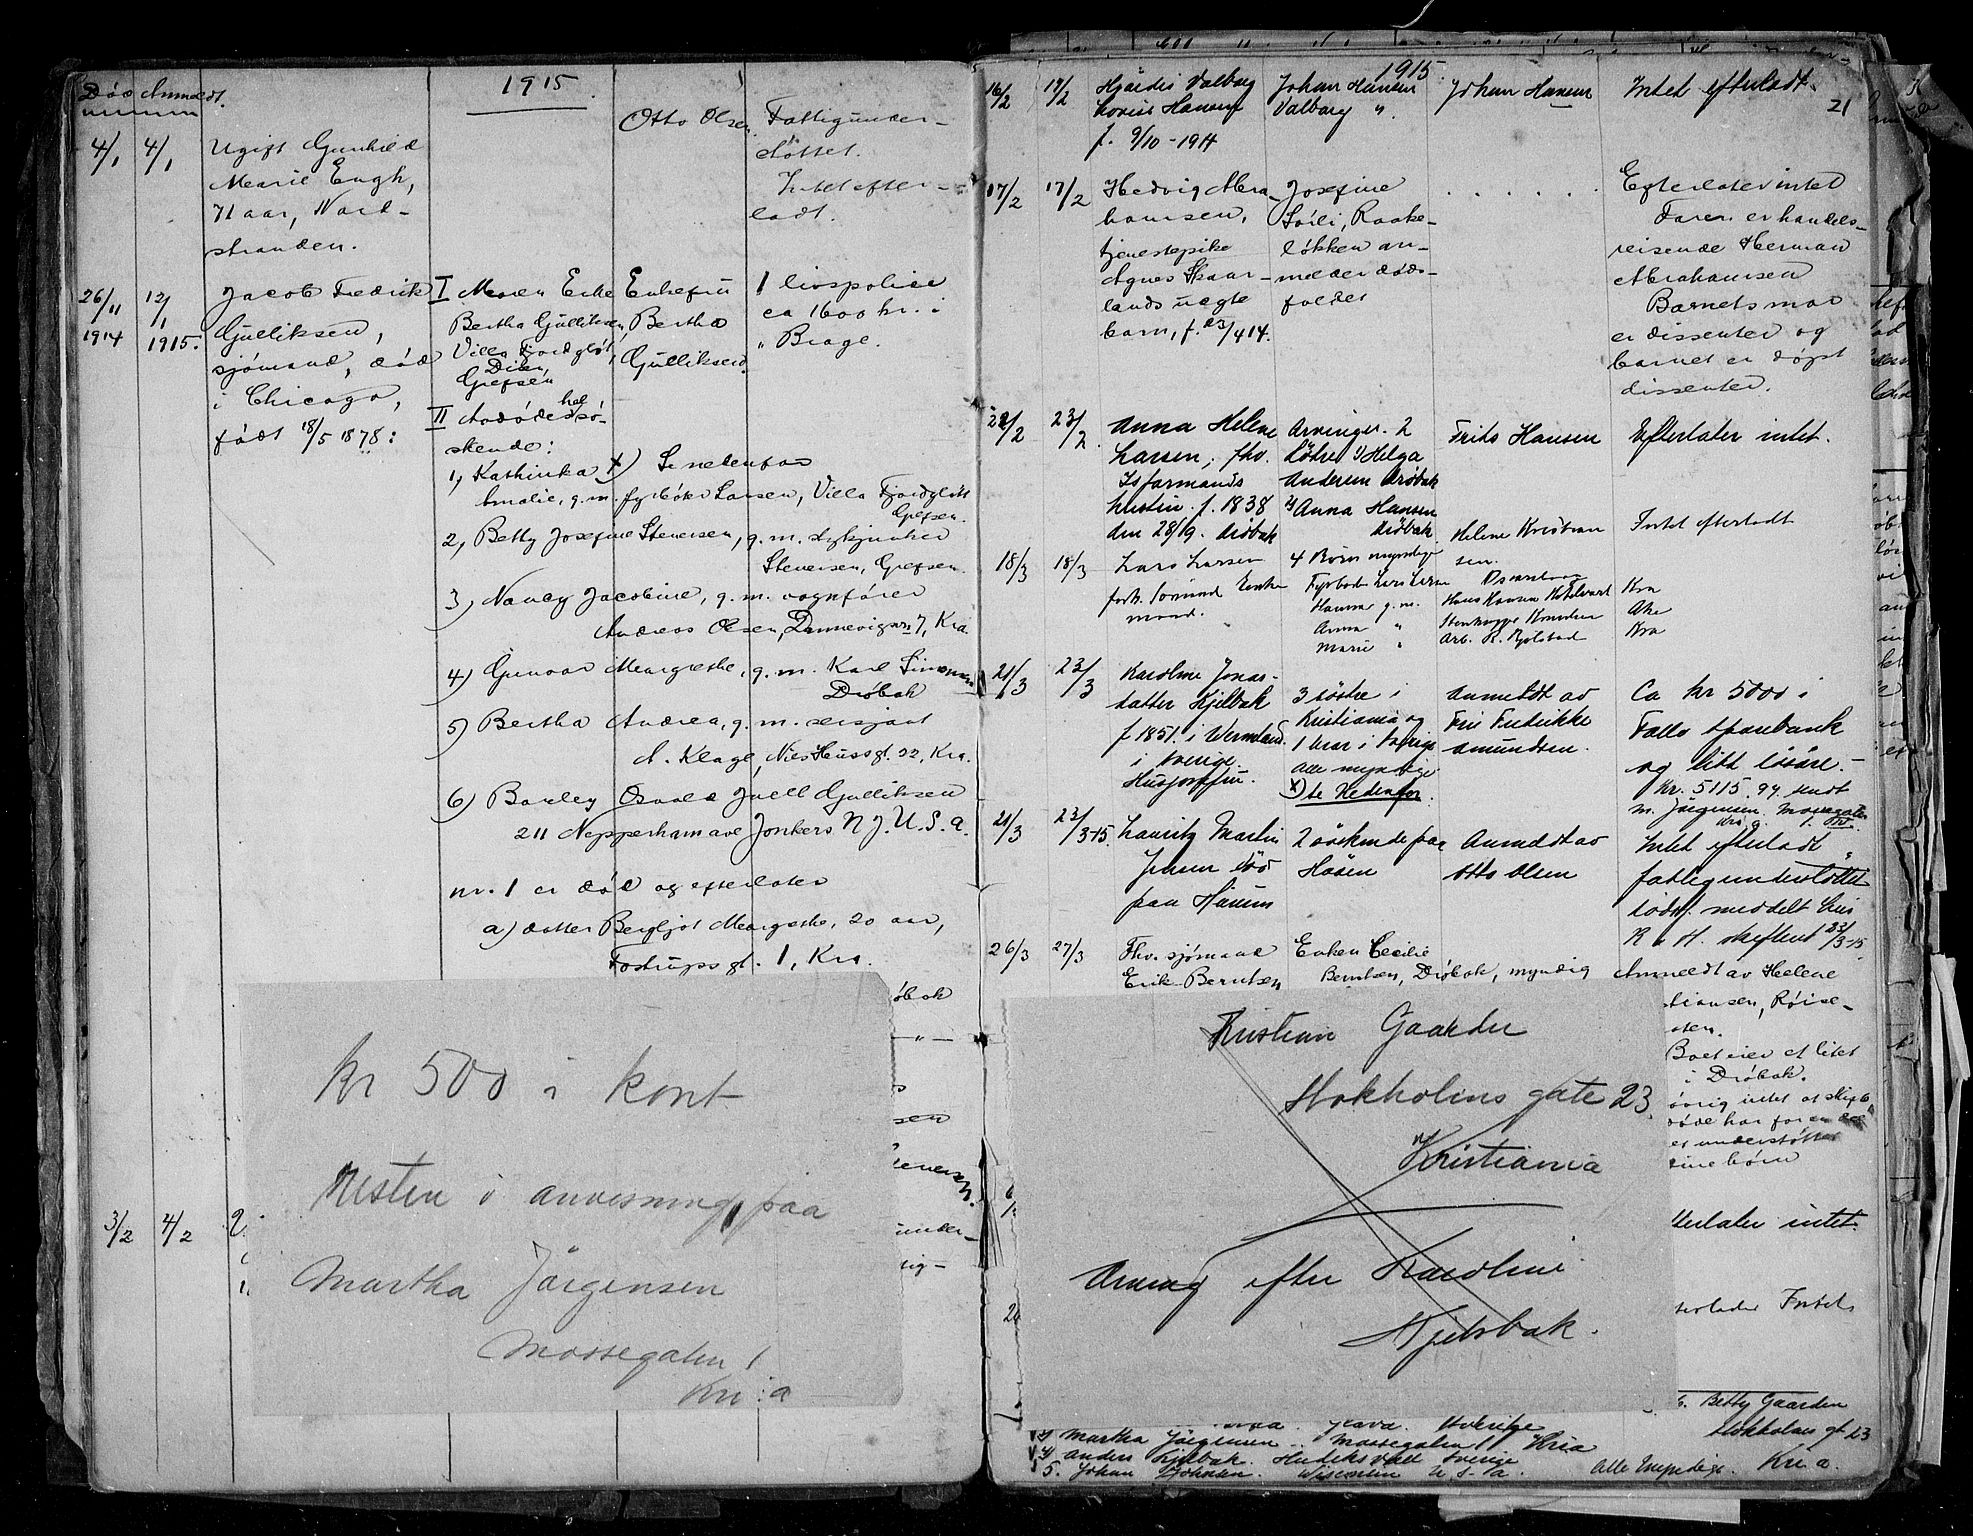 1915.
Død Anmeldt.
4/1 4/1 Ugift Gunhild
Marie Engh,
71 aar, Nord-
stranden.
Otto Olsen
Fattigunder-
støttet.
Intet efter-
ladt.
26/11 1914 12/1 1915. Jacob Fredrik
Gulliksen,
sjømand, død
i Chicago,
født 18/5 1878:
I Moren Enke
Bertha Gulliksen,
Villa Fjordgløt,
Grefsen
II Avdødes hel
sø-
skende:
Enkefru
Bertha
Gulliksen.
1 livspolice
ca 1600 kr. i
" Brage.
1) Kathinka x) Se nedenfor
Amalie, g.m. fyrbøter Larsen, Villa Fjordgløtt
Grefsen.
2) Betty Josefine Stenersen, g.m. styrmand
Stenersen, Grefsen.
3) Nancy Jacobine, g.m. vognfører
Andreas Olsen, Dannevigsv 7, Kra.
4) Gunvor Margrethe, g.m. Karl Simonsen
Drøbak
5) Bertha Andrea, g.m. sersjant
A. Klage, Niels Hussgt. 22, Kra.
6) Barley Osvald Juell Gulliksen
211 Nepperham ave Jonkers N.J. U.S.A.
nr. 1 er død og efterlater
a) datter Bergljot Margrethe, 20 aar,
Fostrupsgt. 1, Kra.
øbak
— " —
sen
under-
3/2 4/2
kr 500 i kont
Resten i anvisning paa
Martha Jørgensen
Mossegaten 1
Kri:a
1915.
21
16/2 17/2 Hjørdis Valborg
Lovise Hansen
f. 9/10 - 1914
Johan Hansen
Valborg "
Johan Hansen
Intet efterladt.
17/2 17/2 Hedvig Abra-
hamsen,
tjenestepike
Agnes Skaar-
lands uegte
barn, f. 23/4 14.
Josefine
Lörli, Raake-
løkken an-
melder døds-
faldet
. . . . . .
Efterlater intet
Faren er handels-
reisende Herman
Abrahamsen
Barnets mor
er dissenter og
barnet er døpt
dissenter.
22/2 23/2. Anna Helene
Larsen, fhv.
Isfarmands
hustru. f. 1838
den 28/9. Drøbak
Arvinger. 2
Døtre 1) Helga
Andersen Drøbak
2) Anna Hansen
Drøbak
Frits Hansen
Efterlater intet.
18/3 18/3 Lars Larsen
forh. Sømand Enke
mand.
4 Børn myndige
Fyrbøter Lars Larsen
Hanna g.m.
Anna "
Marie "
Helene Kristian
sen.
Hans Hansen
Arb.
Intet efterladt
Kra
Aker
Kra
21/3 23/3 Karoline Jonas-
datter Kjelbak
f 1851. i Wermland
i Sverige.
Husjomfru.
3 søstre i
Kristiania og
1 bror i Sverige
alle myndige
x) se Nedenfor.
Anmeldt av
Fru Fredrikke
Amundsen.
Ca kr 5000 i
Follo Sparebank
og litt løsøre. -
Kr. 5115.94 sendt
M. Jørgensen Mossegaten
1. Kr.a.
21/3 23/3-15. Lauritz Martin
Jensen død
paa Häuen
2 søskende paa
Häöen
Anmeldt av
Otto Olsen
Intet efterladt
fattigunderstøttet
Lods. meddelt
R. H. skifteret 23/3-15
26/3 27/3 Fhv. sjømand
Erik Berntsen
Enken Cecilie
Berntsen, Drøbak, myndig
Anmeldt av Helene
tiansen, Røise-
sten.
Boet eier et litet
i Drøbak.
øvrig intet at skifte
døde har for en del
et understøttet
sine børn
Kristian Gaarder
Stokholms gate 23.
Kristiania
Arving efter Karoline
Kjelsbak.
fterlater intet.
terlader Intet
Betty Gaarder
Stokholms gt 23
Kri a.
Sverige
3) Martha Jørgensen. Mossegaten 1 Kria
4) Anders Kjelbak. Hudiksvall Sverige
5. Johan Johnsen. Wisconsin U.S.A.
Alle Myndige.